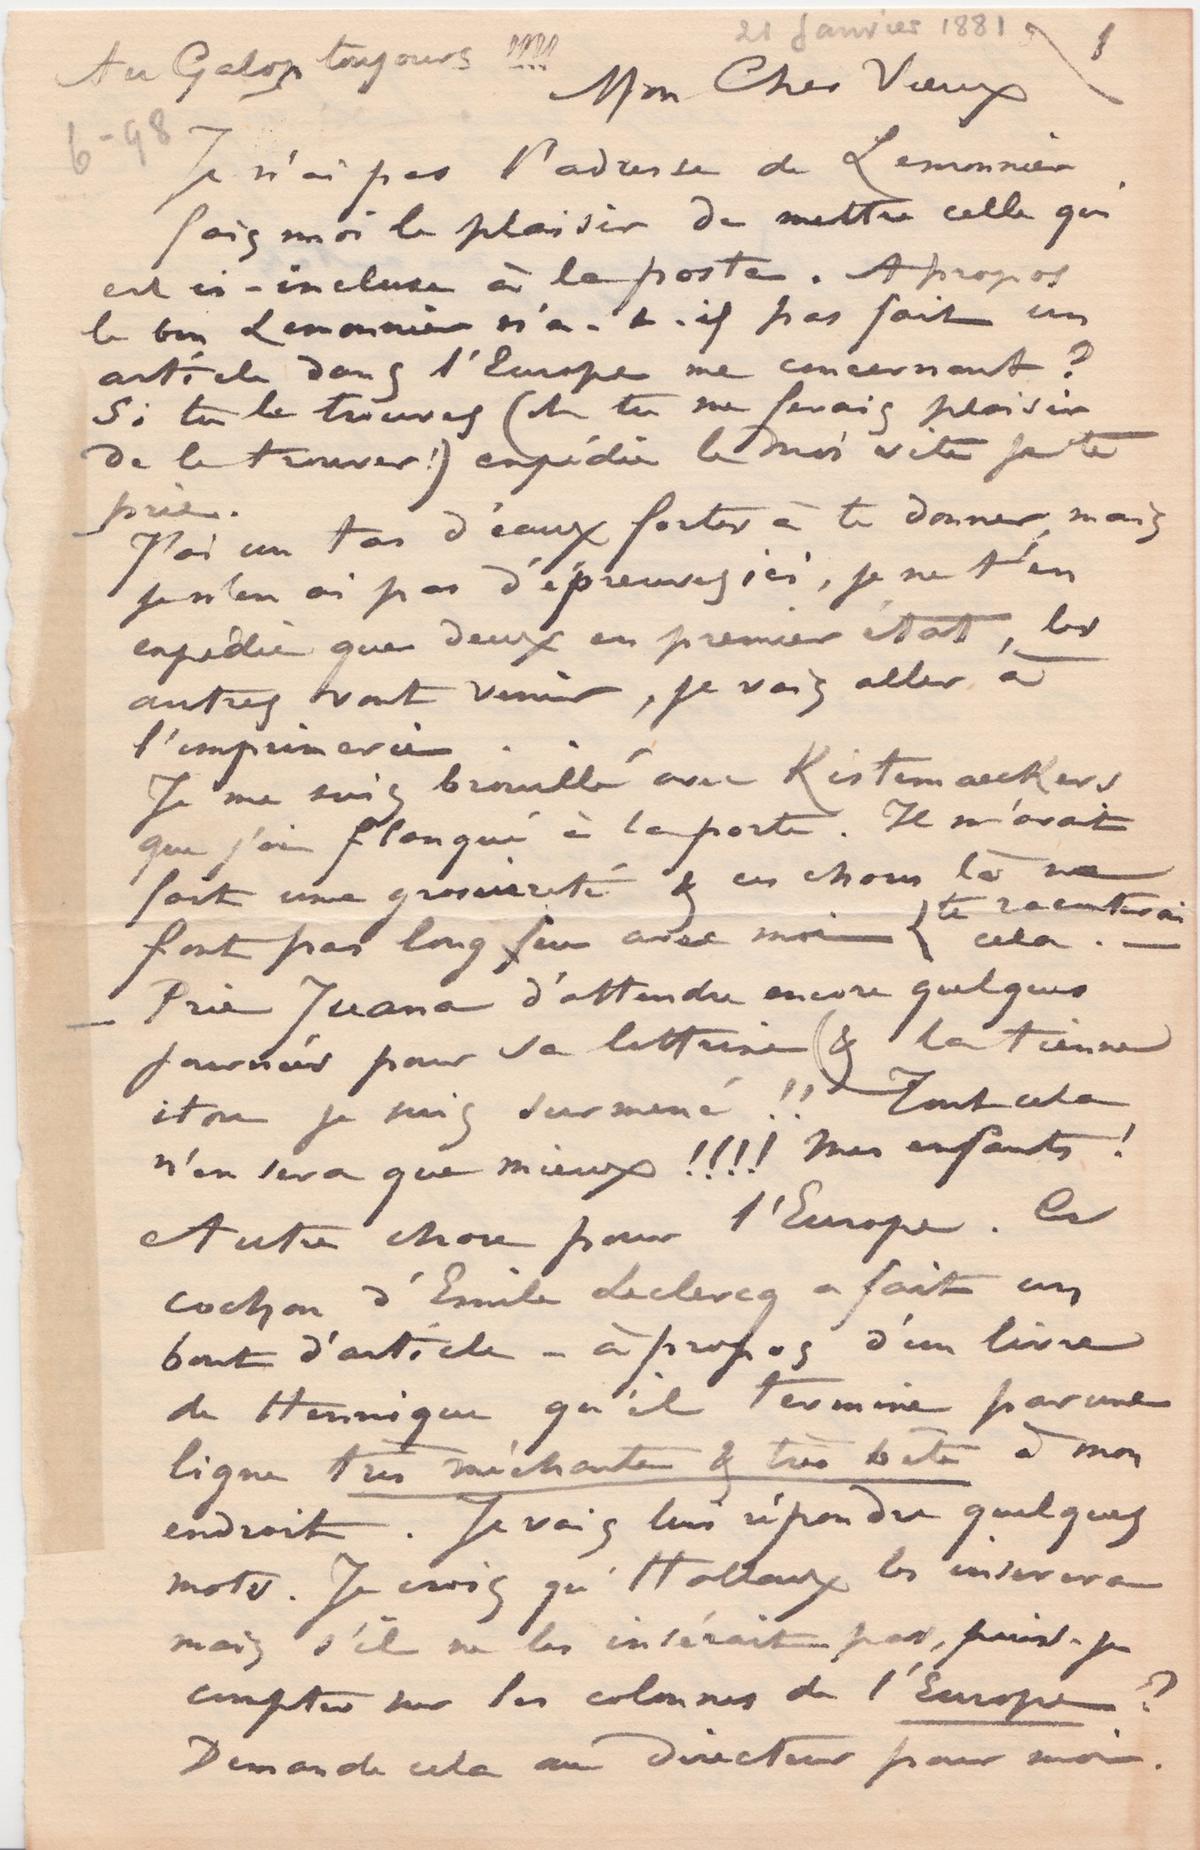 21 Janvier 1881
1
Au Galop toujours !!!!
Mon Cher Vieux
6-98
Je n'ai pas l'adresse de Lemonnier.
fais moi le plaisir de mettre celle qui
est ci-incluse à la poste. A propos
le bon Lemonnier n'a-t-il pas fait un
article dans l'Europe me concernant ?
Si tu le trouves (& tu me ferais plaisir
de le trouver!) expédie le moi vite je te
prie.
J'ai un tas d'eaux fortes à te donner, mais
je n'en ai pas d'épreuves ici, je ne t'en
expédie que deux en premier état, les
autres vont venir, je vais aller à
l'imprimerie.
Je me suis brouillé avec Kistemaeckers
que j'ai flanqué à la porte. Il m'avait
fait une grossiereté & ces choses là ne
font pas long feu avec moi { te raconterai
cela. —
— Prie Juana d'attendre encore quelques
journées pour sa lettrine (& la tienne
itou je suis surmené !! Tout cela
n'en sera que mieux !!!! Mes enfants !
Autre chose pour l'Europe. Ce
cochon d'Emile Leclercq a fait un
bout d'article - à propos d'un livre
de Hennique qu'il termine par une
ligne très méchante & très bête à mon
endroit. Je vais lui répondre quelques
mots. Je crois qu'Hallaux les inserera
mais s'il ne les insérait pas, puis-je
compter sur les colonnes de l'Europe ?
Demande cela au Directeur pour moi.